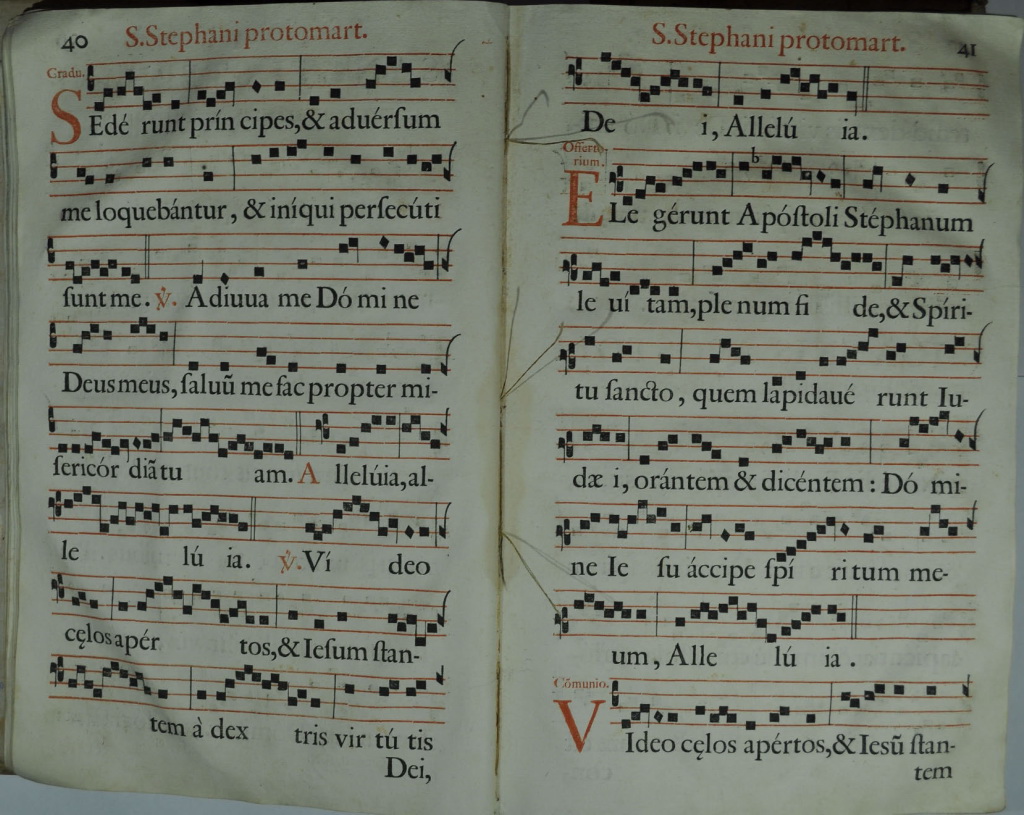 40 S. Stephani protomart.
Gradu.
SEdé runt prín cipes, & aduérſum
me loquebántur, & iníqui perſecúti
ſunt me. ℣. Adiuua me Dó mi ne
Deus meus, ſaluũ me fac propter mi-
ſericór diã tu am. A lleluia, al-
le lú ia. ℣. Ví deo
cęlos apér tos, & Ieſum ſtan-
tem à dex tris vir tú tis
Dei,
S. Stephani protomart. 41
De i, Allelú ia.
Offerto-
rium.
ELe gérunt Apóſtoli Stéphanum
le uí tam, ple num fi de, & Spíri-
tu ſancto, quem lapidaué runt Iu-
dæ i, orántem & dicéntem: Dó mi-
ne Ie ſu áccipe ſpí ri tum me-
um, Alle lú ia.
Cómunio.
VIdeo cęlos apértos, & Iesũ ſtan-
tem